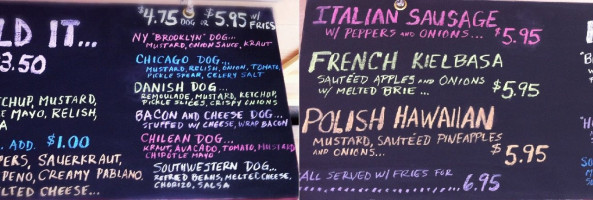 LD IT...
3.50
TCHUP, MUSTARD,
E MAYO, RELISH,
A
. ADD. $1.00
PERS, SAUERKRAUT,
PENO, CREAMY PABLANO,
LTED CHEESE...
$4.75 DOG OR $5.95 W/ FRIES
NY "BROOKLYN" DOG...
MUSTARD, ONION SAUCE, KRAUT
CHICAGO DOG...
MUSTARD, RELISH, ONION, TOMATO,
PICKLE SPEAR, CELERY SALT
DANISH DOG...
REMOULADE, MUSTARD, KETCHUP,
PICKLE SLICES, CRISPY ONIONS
BACON AND CHEESE DOG...
STUFFED W/ CHEESE, WRAP BACON
CHILEAN DOG...
KRAUT, AVACADO, TOMATO, MUSTARD
CHIPOTLE MAYO
SOUTHWESTERN DOG...
REFRIED BEANS, MELTED CHEESE,
CHORIZO, SALSA
ITALIAN SAUSAGE
W/ PEPPERS AND ONIONS... $5.95
FRENCH KIELBASA
SAUTÉED APPLES AND ONIONS
W/ MELTED BRIE... $5.95
POLISH HAWAIIAN
MUSTARD, SAUTÉED PINEAPPLES
AND ONIONS... $5.95
ALL SERVED W/ FRIES FOR
6.95